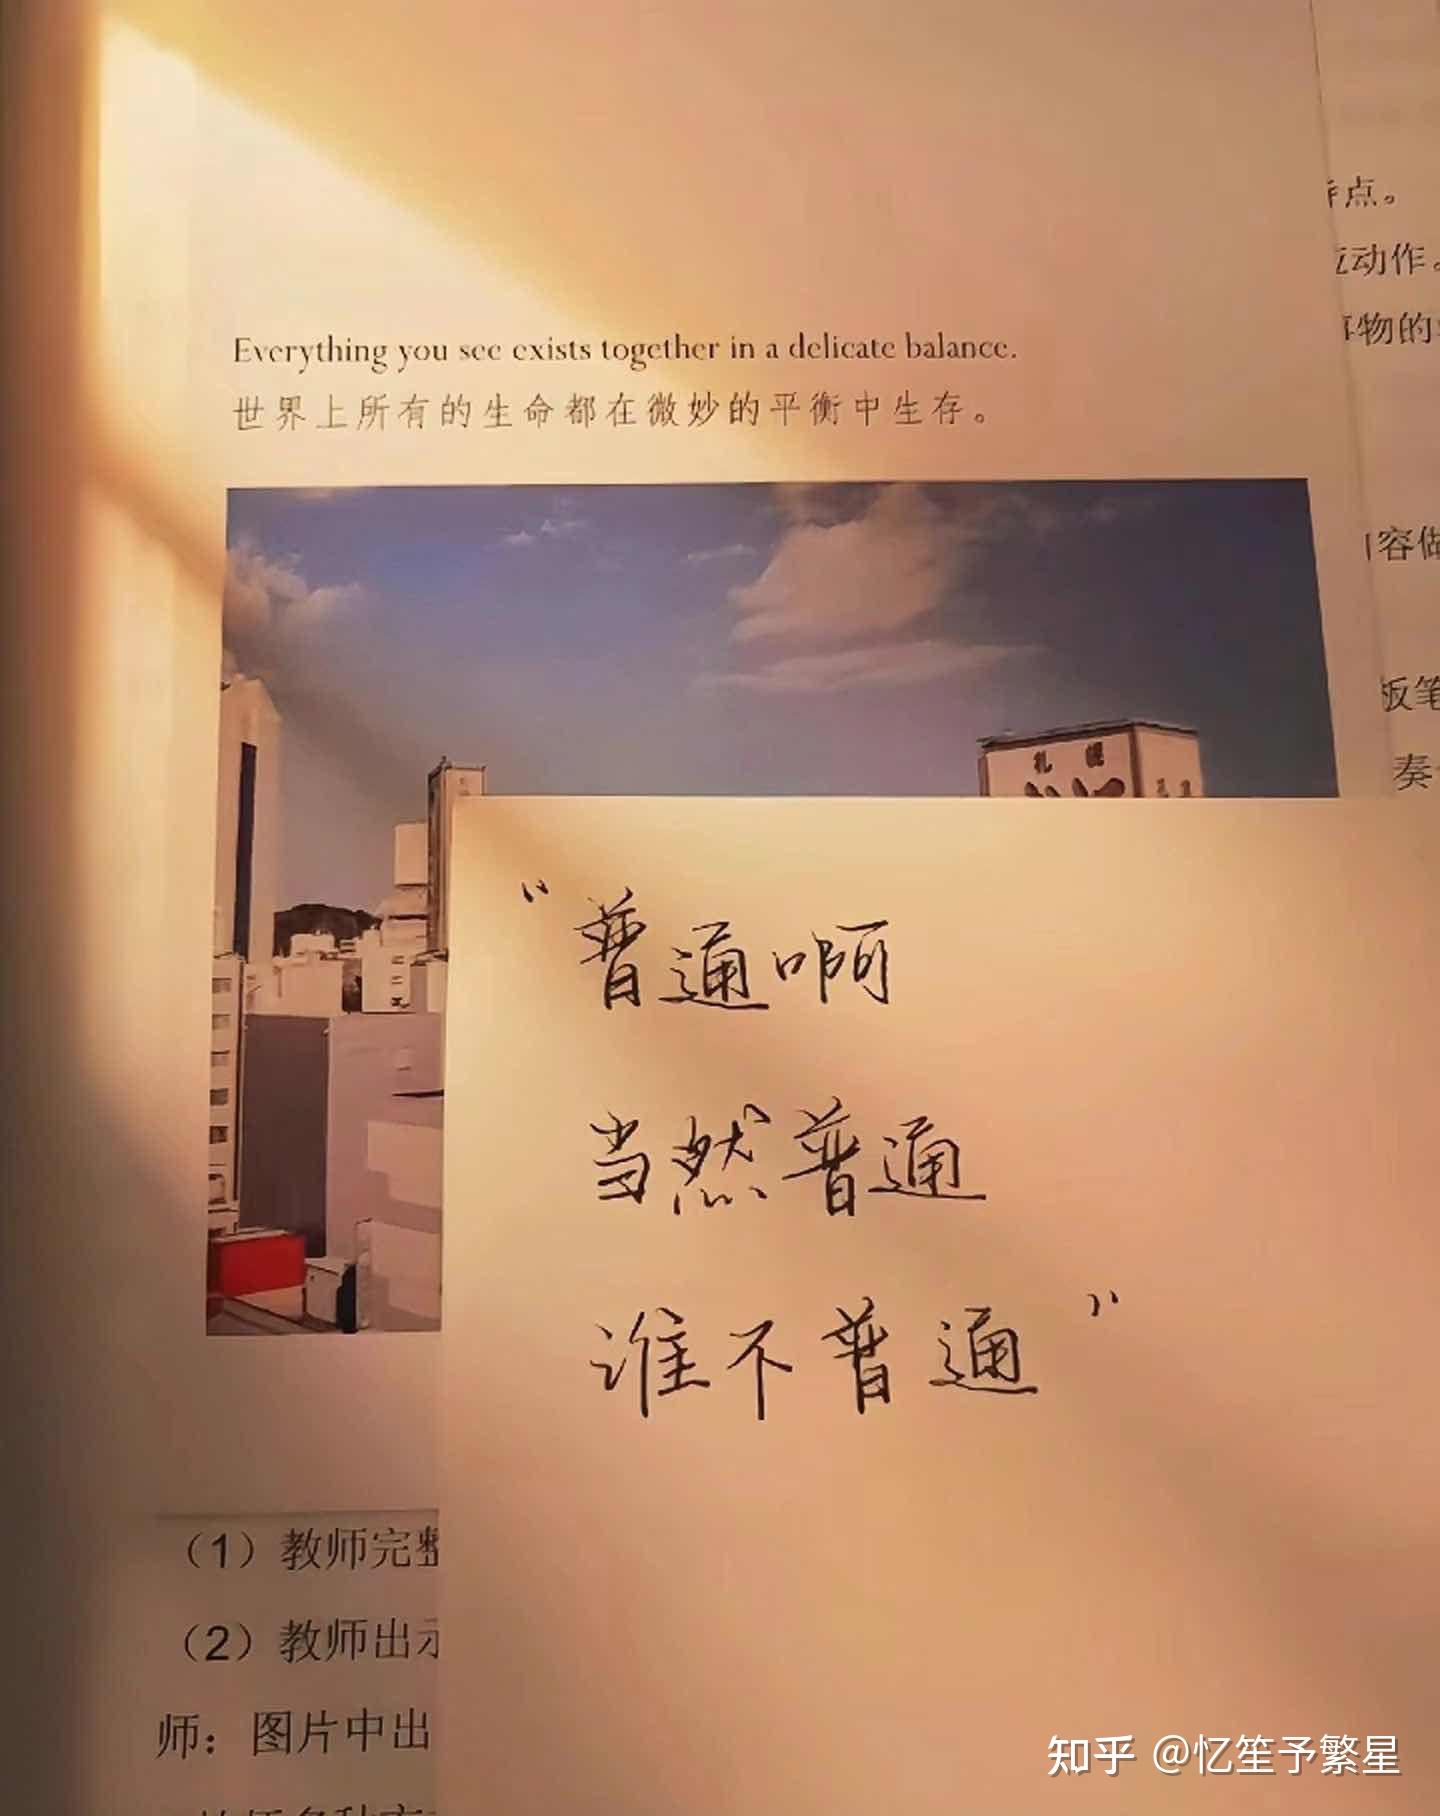 点。
动作。
物的
Everything you see exists together in a delicate balance.
世界上所有的生命都在微妙的平衡中生存。
容做
板笔
奏
札幌
“普通啊
当然普通
谁不普通”
（1）教师完整
（2）教师出示
师：图片中出
知乎 @忆笙予繁星